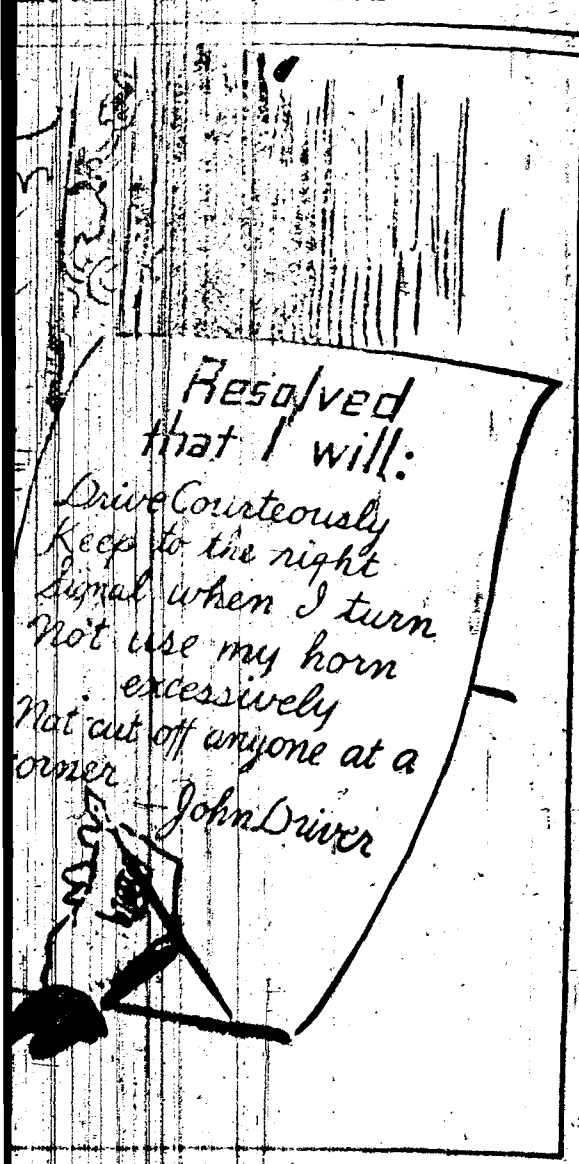 Resolved
that I will:
Drive Courteously
Keep to the right
Signal when I turn
Not use my horn
excessively
Not cut off anyone at a
orner
-John Driver